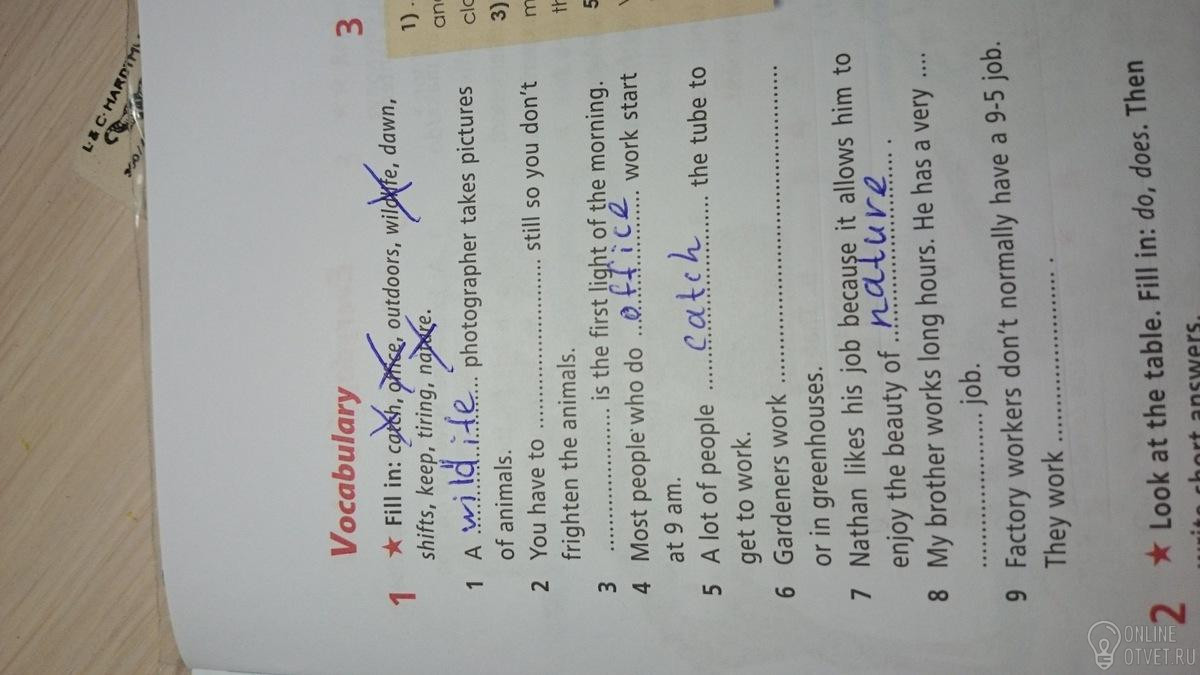 L & C. HARDTMU
Vocabulary
1 ★ Fill in: catch, office, outdoors, wildlife, dawn,
shifts, keep, tiring, nature.
1 A ...wild ife... photographer takes pictures
of animals.
2 You have to .................. still so you don't
frighten the animals.
3 .................. is the first light of the morning.
4 Most people who do ...office... work start
at 9 am.
5 A lot of people ...catch... the tube to
get to work.
6 Gardeners work ..................
or in greenhouses.
7 Nathan likes his job because it allows him to
enjoy the beauty of ...nature... .
8 My brother works long hours. He has a very ....
.................. job.
9 Factory workers don't normally have a 9-5 job.
They work .................. .
2 ★ Look at the table. Fill in: do, does. Then
short answers.
3
1)
3)
5
ONLINE
OTVET.RU